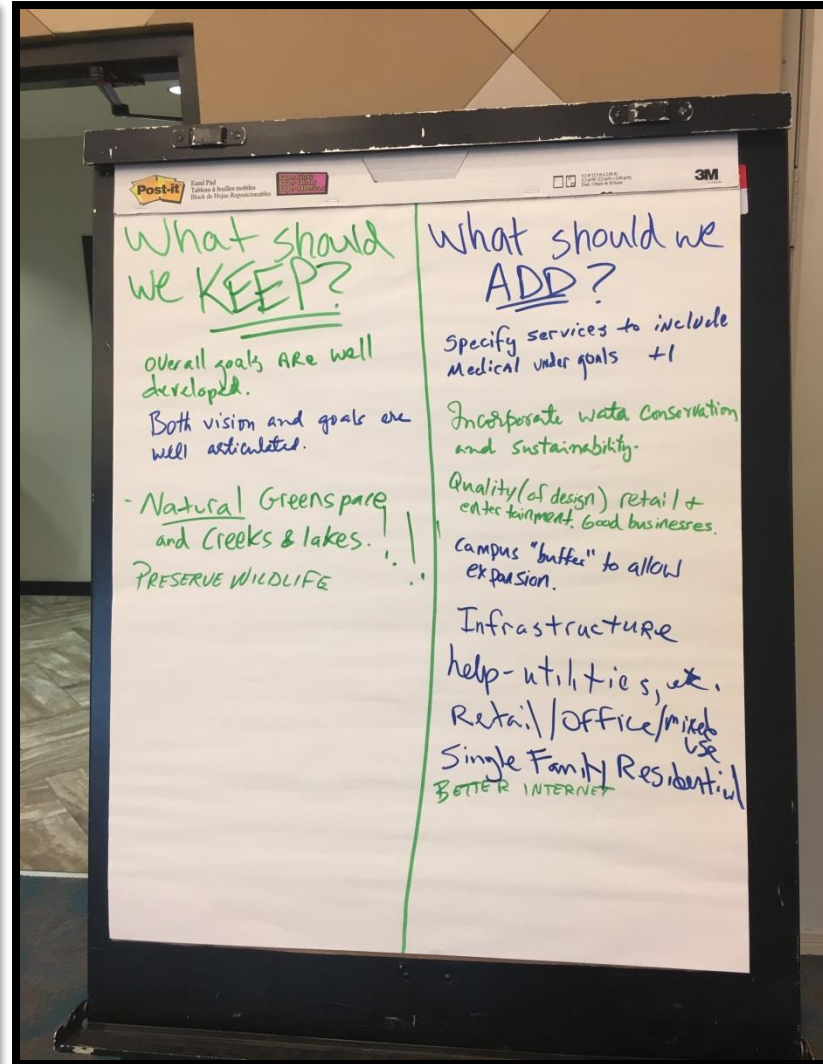 Post-it
Easel Pad
Tableau à feuilles mobiles
Block de Hojas Reposicionables
3M
What should
we KEEP?
Overall goals ARE well
developed.
Both vision and goals are
well articulated.
- Natural Greenspace
and Creeks & lakes. !!!
PRESERVE WILDLIFE
What should we
ADD?
Specify services to include
Medical under goals +1
Incorporate wata conservation
and sustainability.
Quality (of design) retail +
entertainment. Good businesses.
Campus "buffer" to allow
expansion.
Infrastructure
help-utilities, etc.
Retail/Office/mixed
use
Single Family Residential
BETTER INTERNET